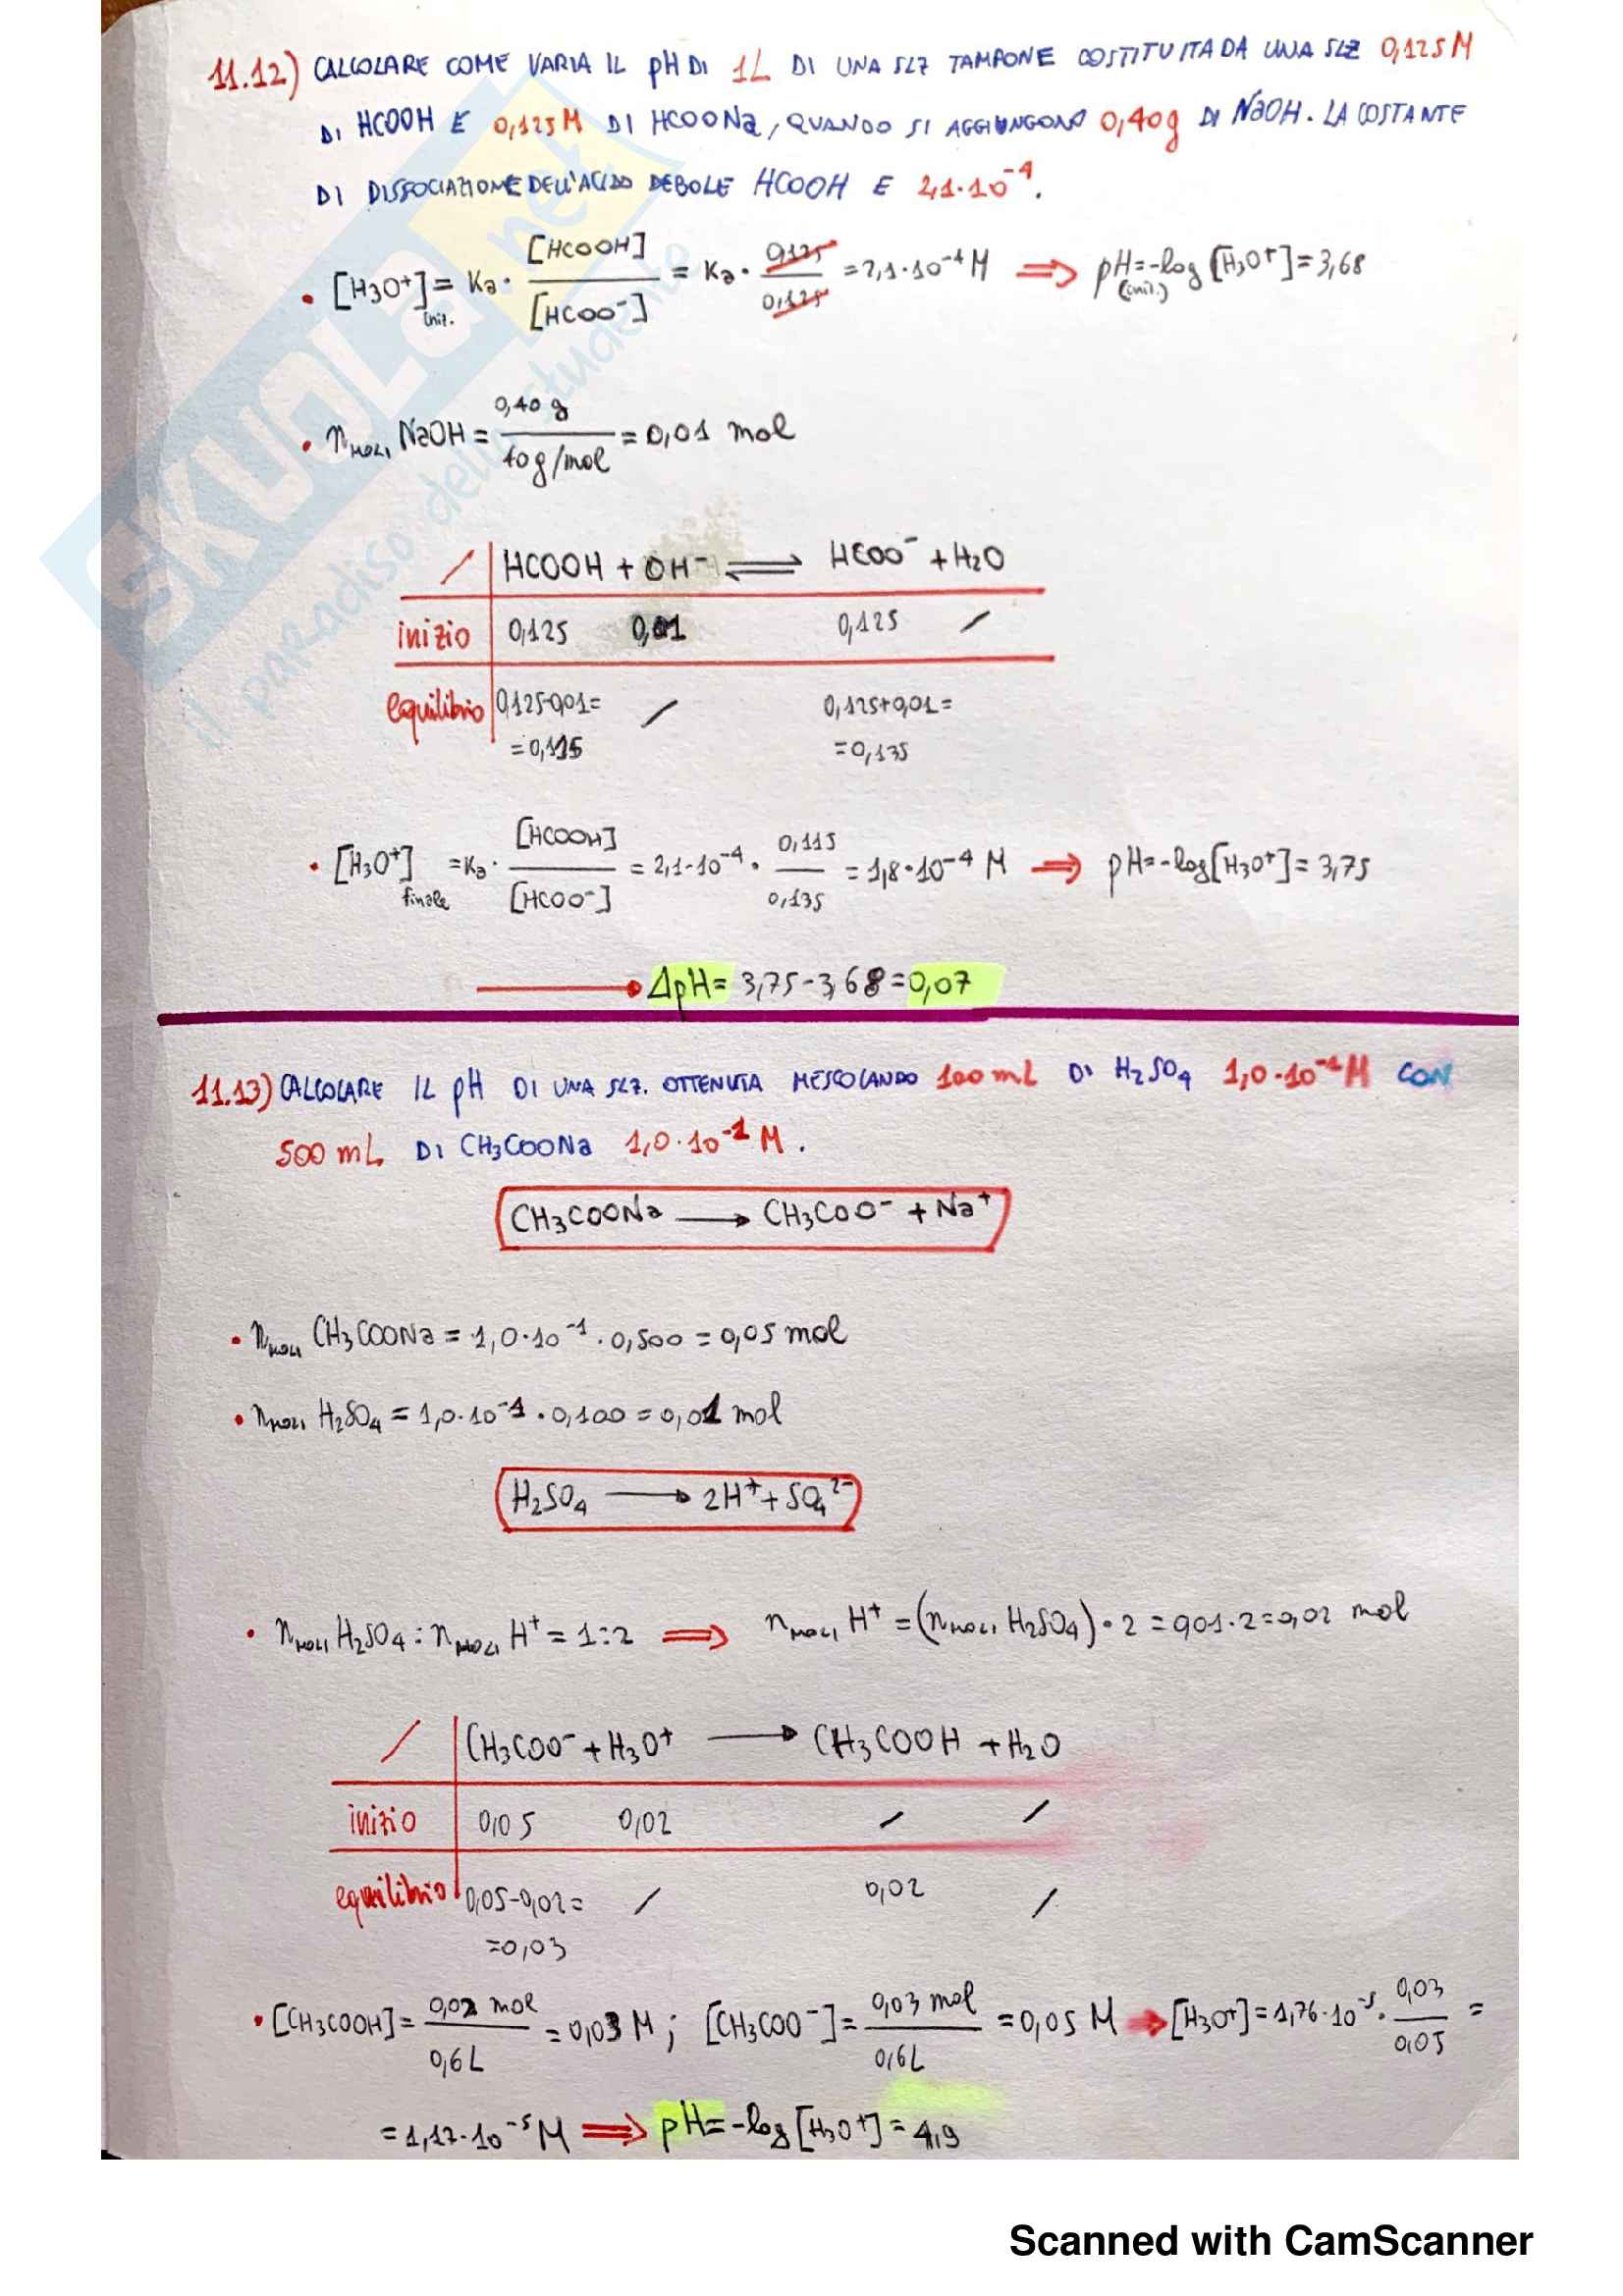 11.12) CALCOLARE COME VARIA IL pH DI 1L DI UNA SLZ TAMPONE COSTITUITA DA UNA SLZ 0,125M
DI HCOOH E 0,125M DI HCOONa, QUANDO SI AGGIUNGONO 0,40g DI NaOH. LA COSTANTE
DI DISSOCIAZIONE DELL'ACIDO DEBOLE HCOOH E 2,1·10⁻⁴.
• [H3O+]init. = Ka · [HCOOH] / [HCOO⁻] = Ka · 0,125 / 0,125 = 2,1·10⁻⁴ M ⇒ pH(init.) = -log [H3O+] = 3,68
• nMOLI NaOH = 0,40 g / 40 g/mol = 0,01 mol
/ HCOOH + OH⁻ ⇌ HCOO⁻ + H2O
inizio 0,125 0,01 0,125 /
equilibrio 0,125-0,01= / 0,125+0,01=
=0,115 =0,135
• [H3O+]finale = Ka · [HCOOH] / [HCOO⁻] = 2,1·10⁻⁴ · 0,115 / 0,135 = 1,8·10⁻⁴ M ⇒ pH=-log[H3O+] = 3,75
ΔpH = 3,75-3,68 = 0,07
11.13) CALCOLARE IL pH DI UNA SLZ. OTTENUTA MESCOLANDO 100 mL DI H2SO4 1,0·10⁻¹M CON
500 mL DI CH3COONa 1,0·10⁻¹ M.
CH3COONa → CH3COO⁻ + Na+
• nMOLI CH3COONa = 1,0·10⁻¹ · 0,500 = 0,05 mol
• nMOLI H2SO4 = 1,0·10⁻¹ · 0,100 = 0,01 mol
H2SO4 → 2H+ + SO4²⁻
• nMOLI H2SO4 : nMOLI H+ = 1:2 ⇒ nMOLI H+ = (nMOLI H2SO4) · 2 = 0,01·2 = 0,02 mol
/ CH3COO⁻ + H3O+ → CH3COOH + H2O
inizio 0,05 0,02 / /
equilibrio 0,05-0,02= / 0,02 /
=0,03
• [CH3COOH] = 0,02 mol / 0,6L = 0,03 M ; [CH3COO⁻] = 0,03 mol / 0,6L = 0,05 M ⇒ [H3O+] = 1,76·10⁻⁵ · 0,03 / 0,05 =
= 1,17·10⁻⁵ M ⇒ pH = -log [H3O+] = 4,9
SKUOLA.net
il paradiso dello studente
Scanned with CamScanner